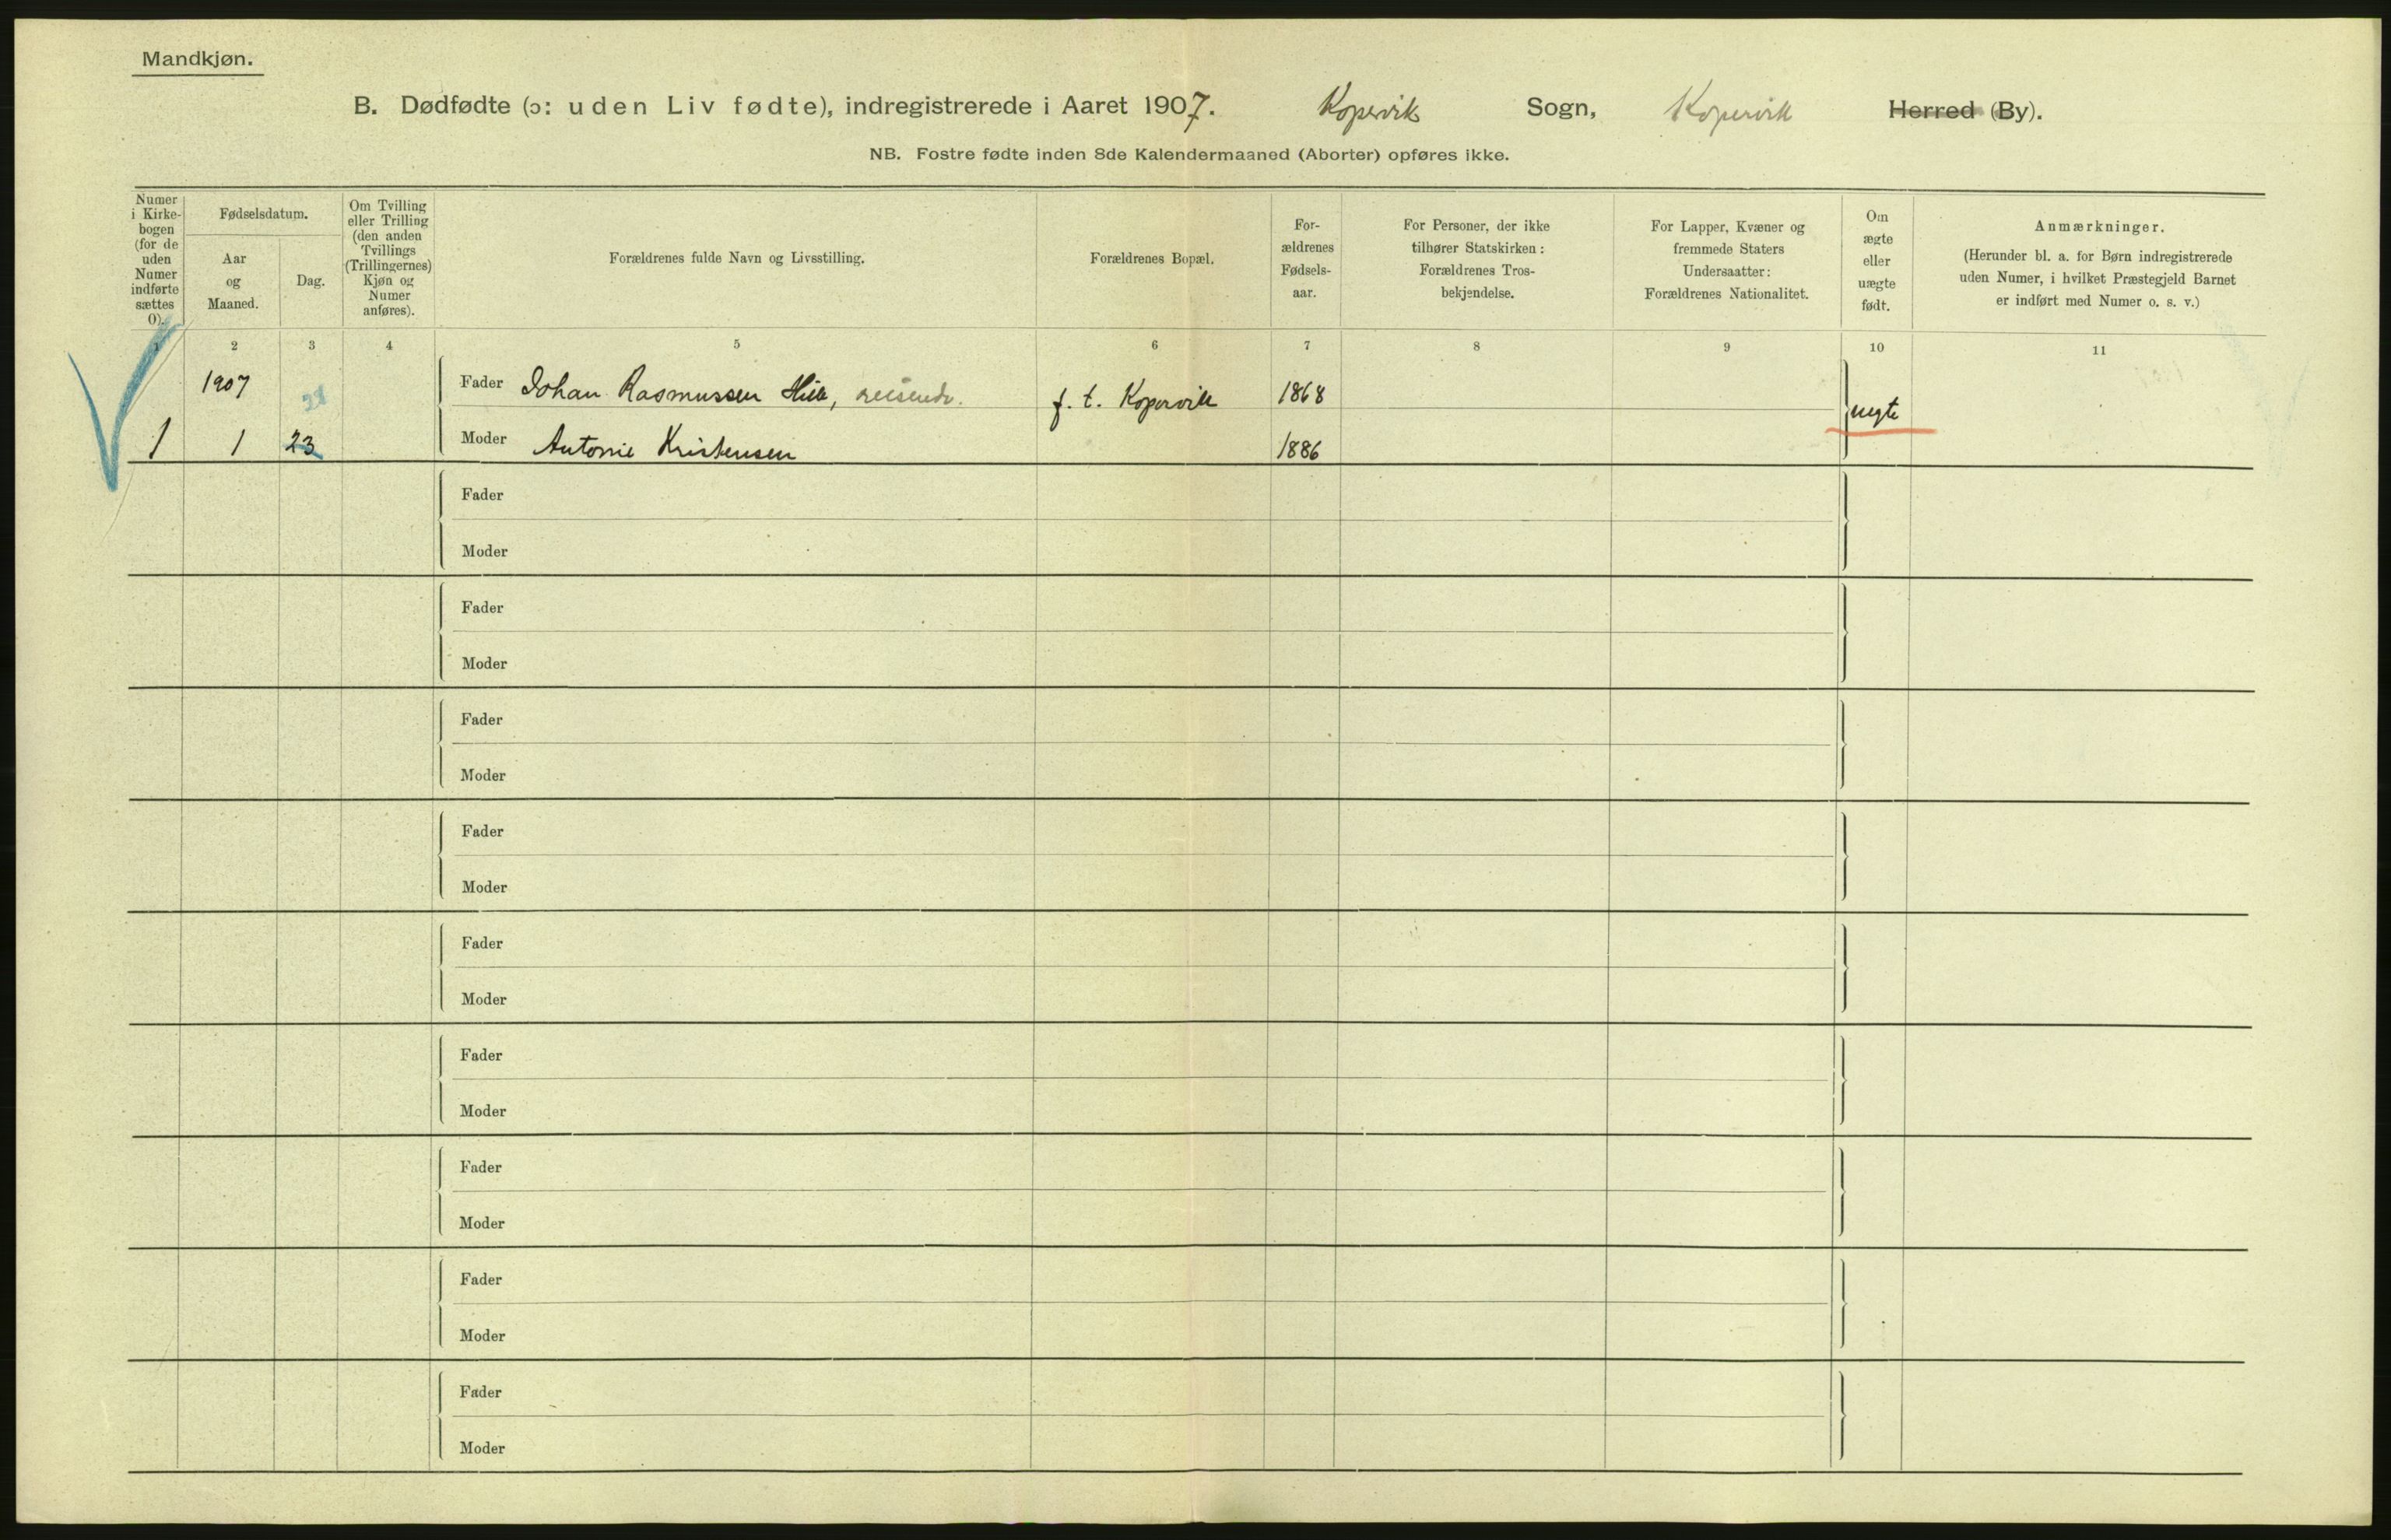 Mandkjøn.
B. Dødfødte (ɔ: uden Liv fødte), indregistrerede i Aaret 1907. Kopervik Sogn, Kopervik Herred (By).
NB. Fostre fødte inden 8de Kalendermaaned (Aborter) opføres ikke.
Numer i Kirkebogen (for de uden Numer indførte sættes 0).
Fødselsdatum.
Aar og Maaned.
Dag.
Om Tvilling eller Trilling (den anden Tvillings (Trillingernes) Kjøn og Numer anføres).
Forældrenes fulde Navn og Livsstilling.
Forældrenes Bopæl.
For-ældrenes Fødsels-aar.
For Personer, der ikke tilhører Statskirken: Forældrenes Tros-bekjendelse.
For Lapper, Kvæner og fremmede Staters Undersaatter: Forældrenes Nationalitet.
Om ægte eller uægte født.
Anmærkninger.
(Herunder bl. a. for Børn indregistrerede uden Numer, i hvilket Præstegjeld Barnet er indført med Numer o. s. v.)
1 2 3 4 5 6 7 8 9 10 11
1907 Fader Johan Rasmussen reisende. f. t. Kopervik 1868 uegte
1 1 23 Moder Antonie Kristensen 1886
Fader
Moder
Fader
Moder
Fader
Moder
Fader
Moder
Fader
Moder
Fader
Moder
Fader
Moder
Fader
Moder
Fader
Moder